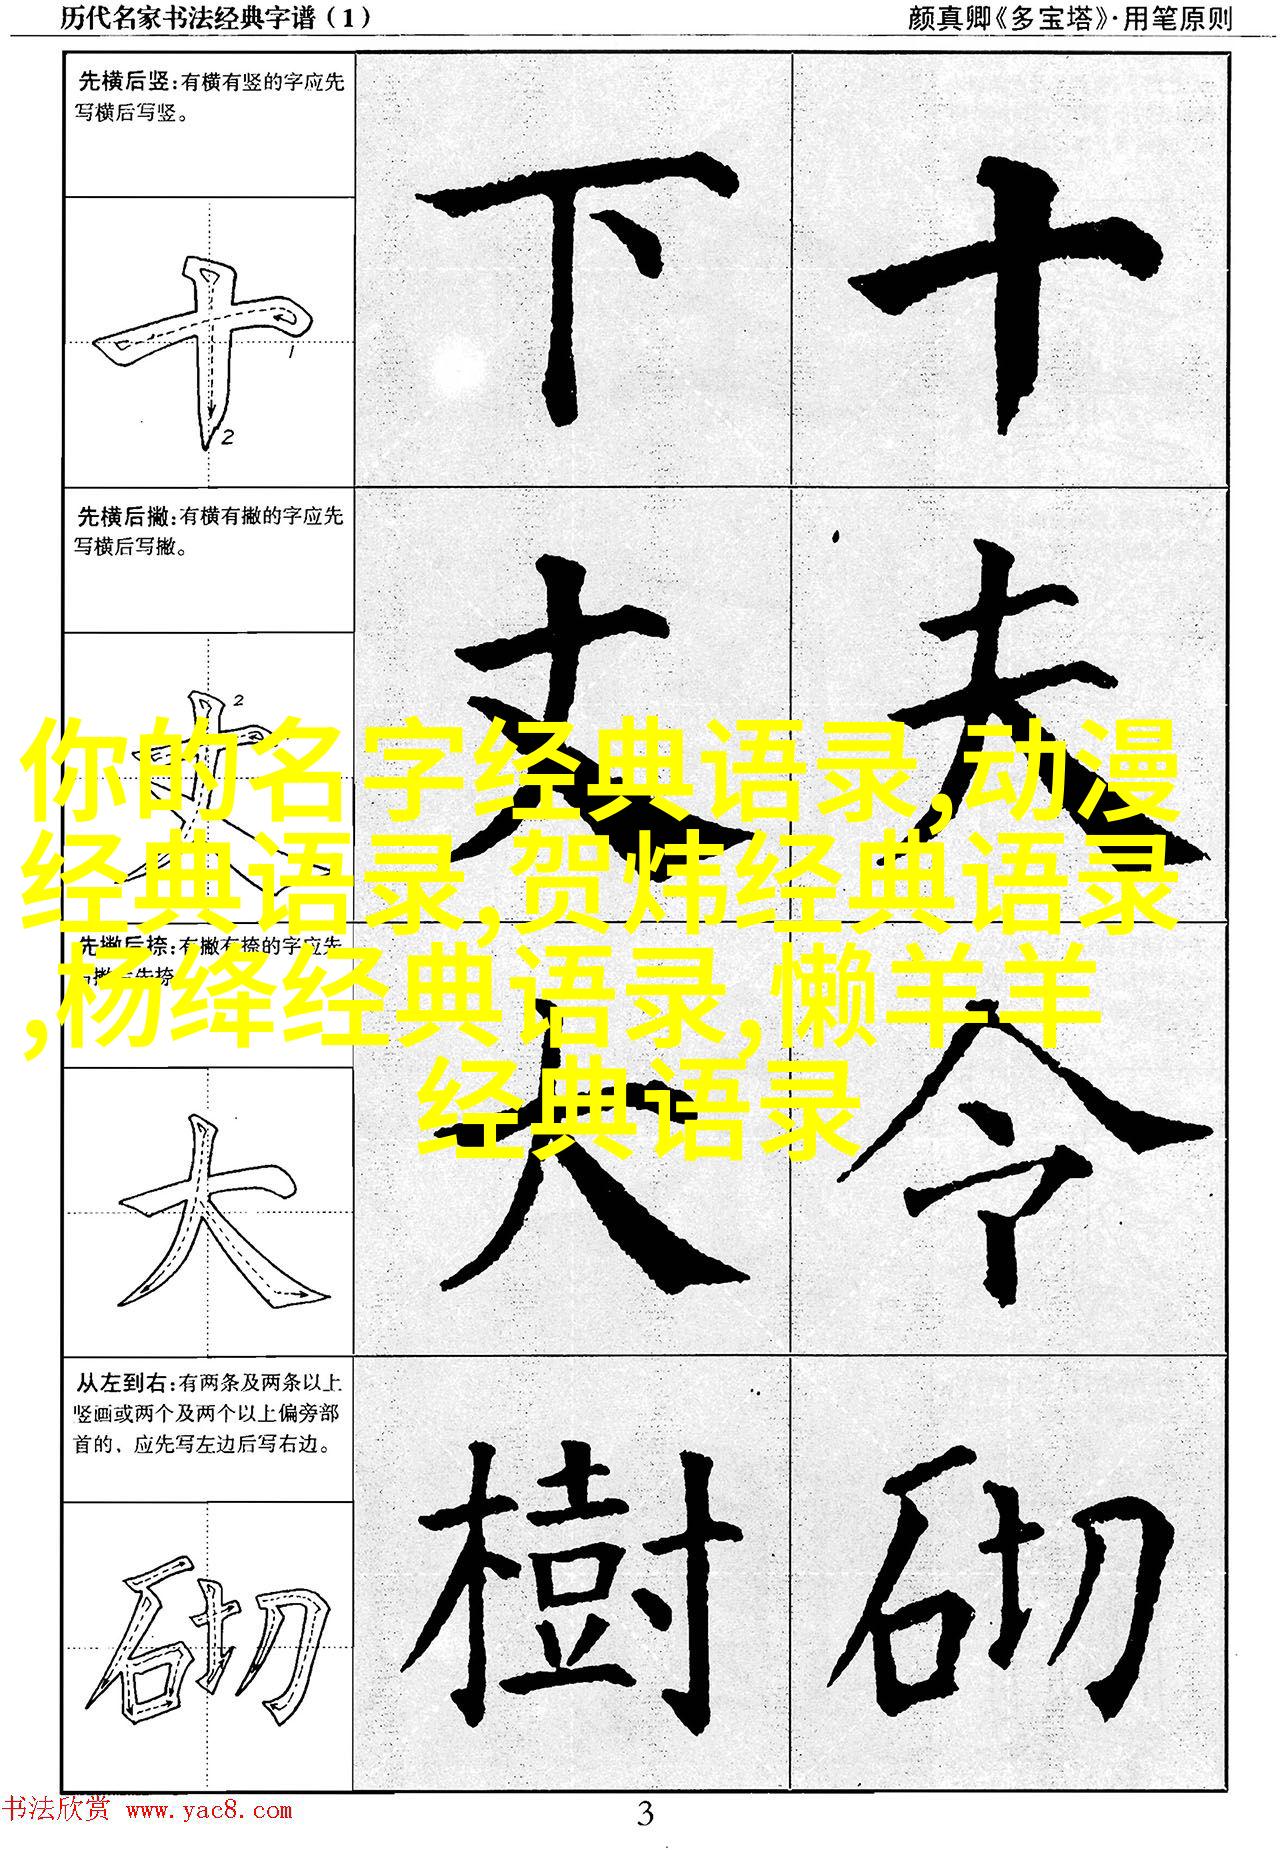 历代名家书法经典字谱（1）
颜真卿《多宝塔》·用笔原则
先横后竖：有横有竖的字应先
写横后写竖。
下 十
1
2
先横后撇：有横有撇的字应先
写横后写撇。
丈 夫
2
你的名字经典语录,动漫
经典语录,贺炜经典语录
,杨绛经典语录,懒羊羊
经典语录
先撇后捺：有撇有捺的字应先
大 令
从左到右：有两条及两条以上
竖画或两个及两个以上偏旁部
首的，应先写左边后写右边。
樹 砌
书法欣赏 www.yac8.com
3